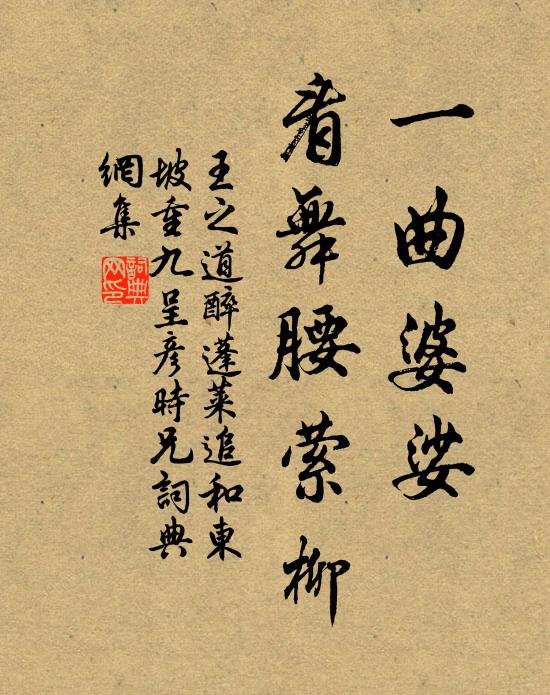 一曲婆娑
看舞腰萦柳
王之道醉蓬萊追和東
坡重九呈彦時兄詞典
網集
詞典
网印